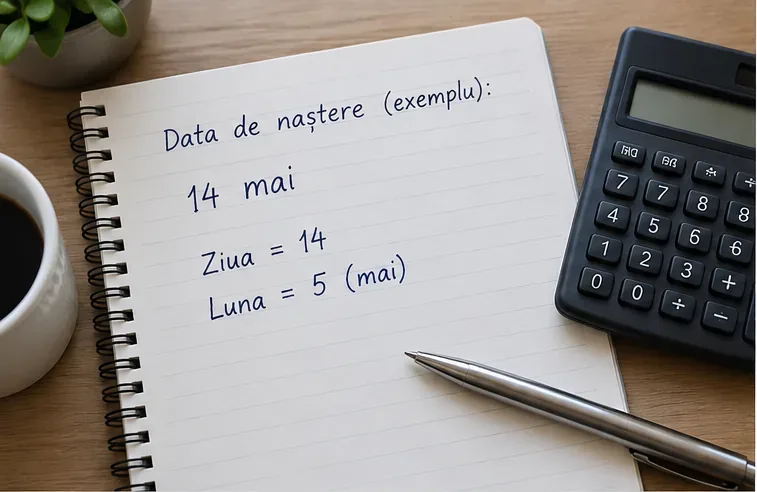 Data de naștere (exemplu):
14 mai
Ziua = 14
Luna = 5 (mai)
7 7 8 8
4 5 6 6
1 2 3 +
0 0 ÷ −